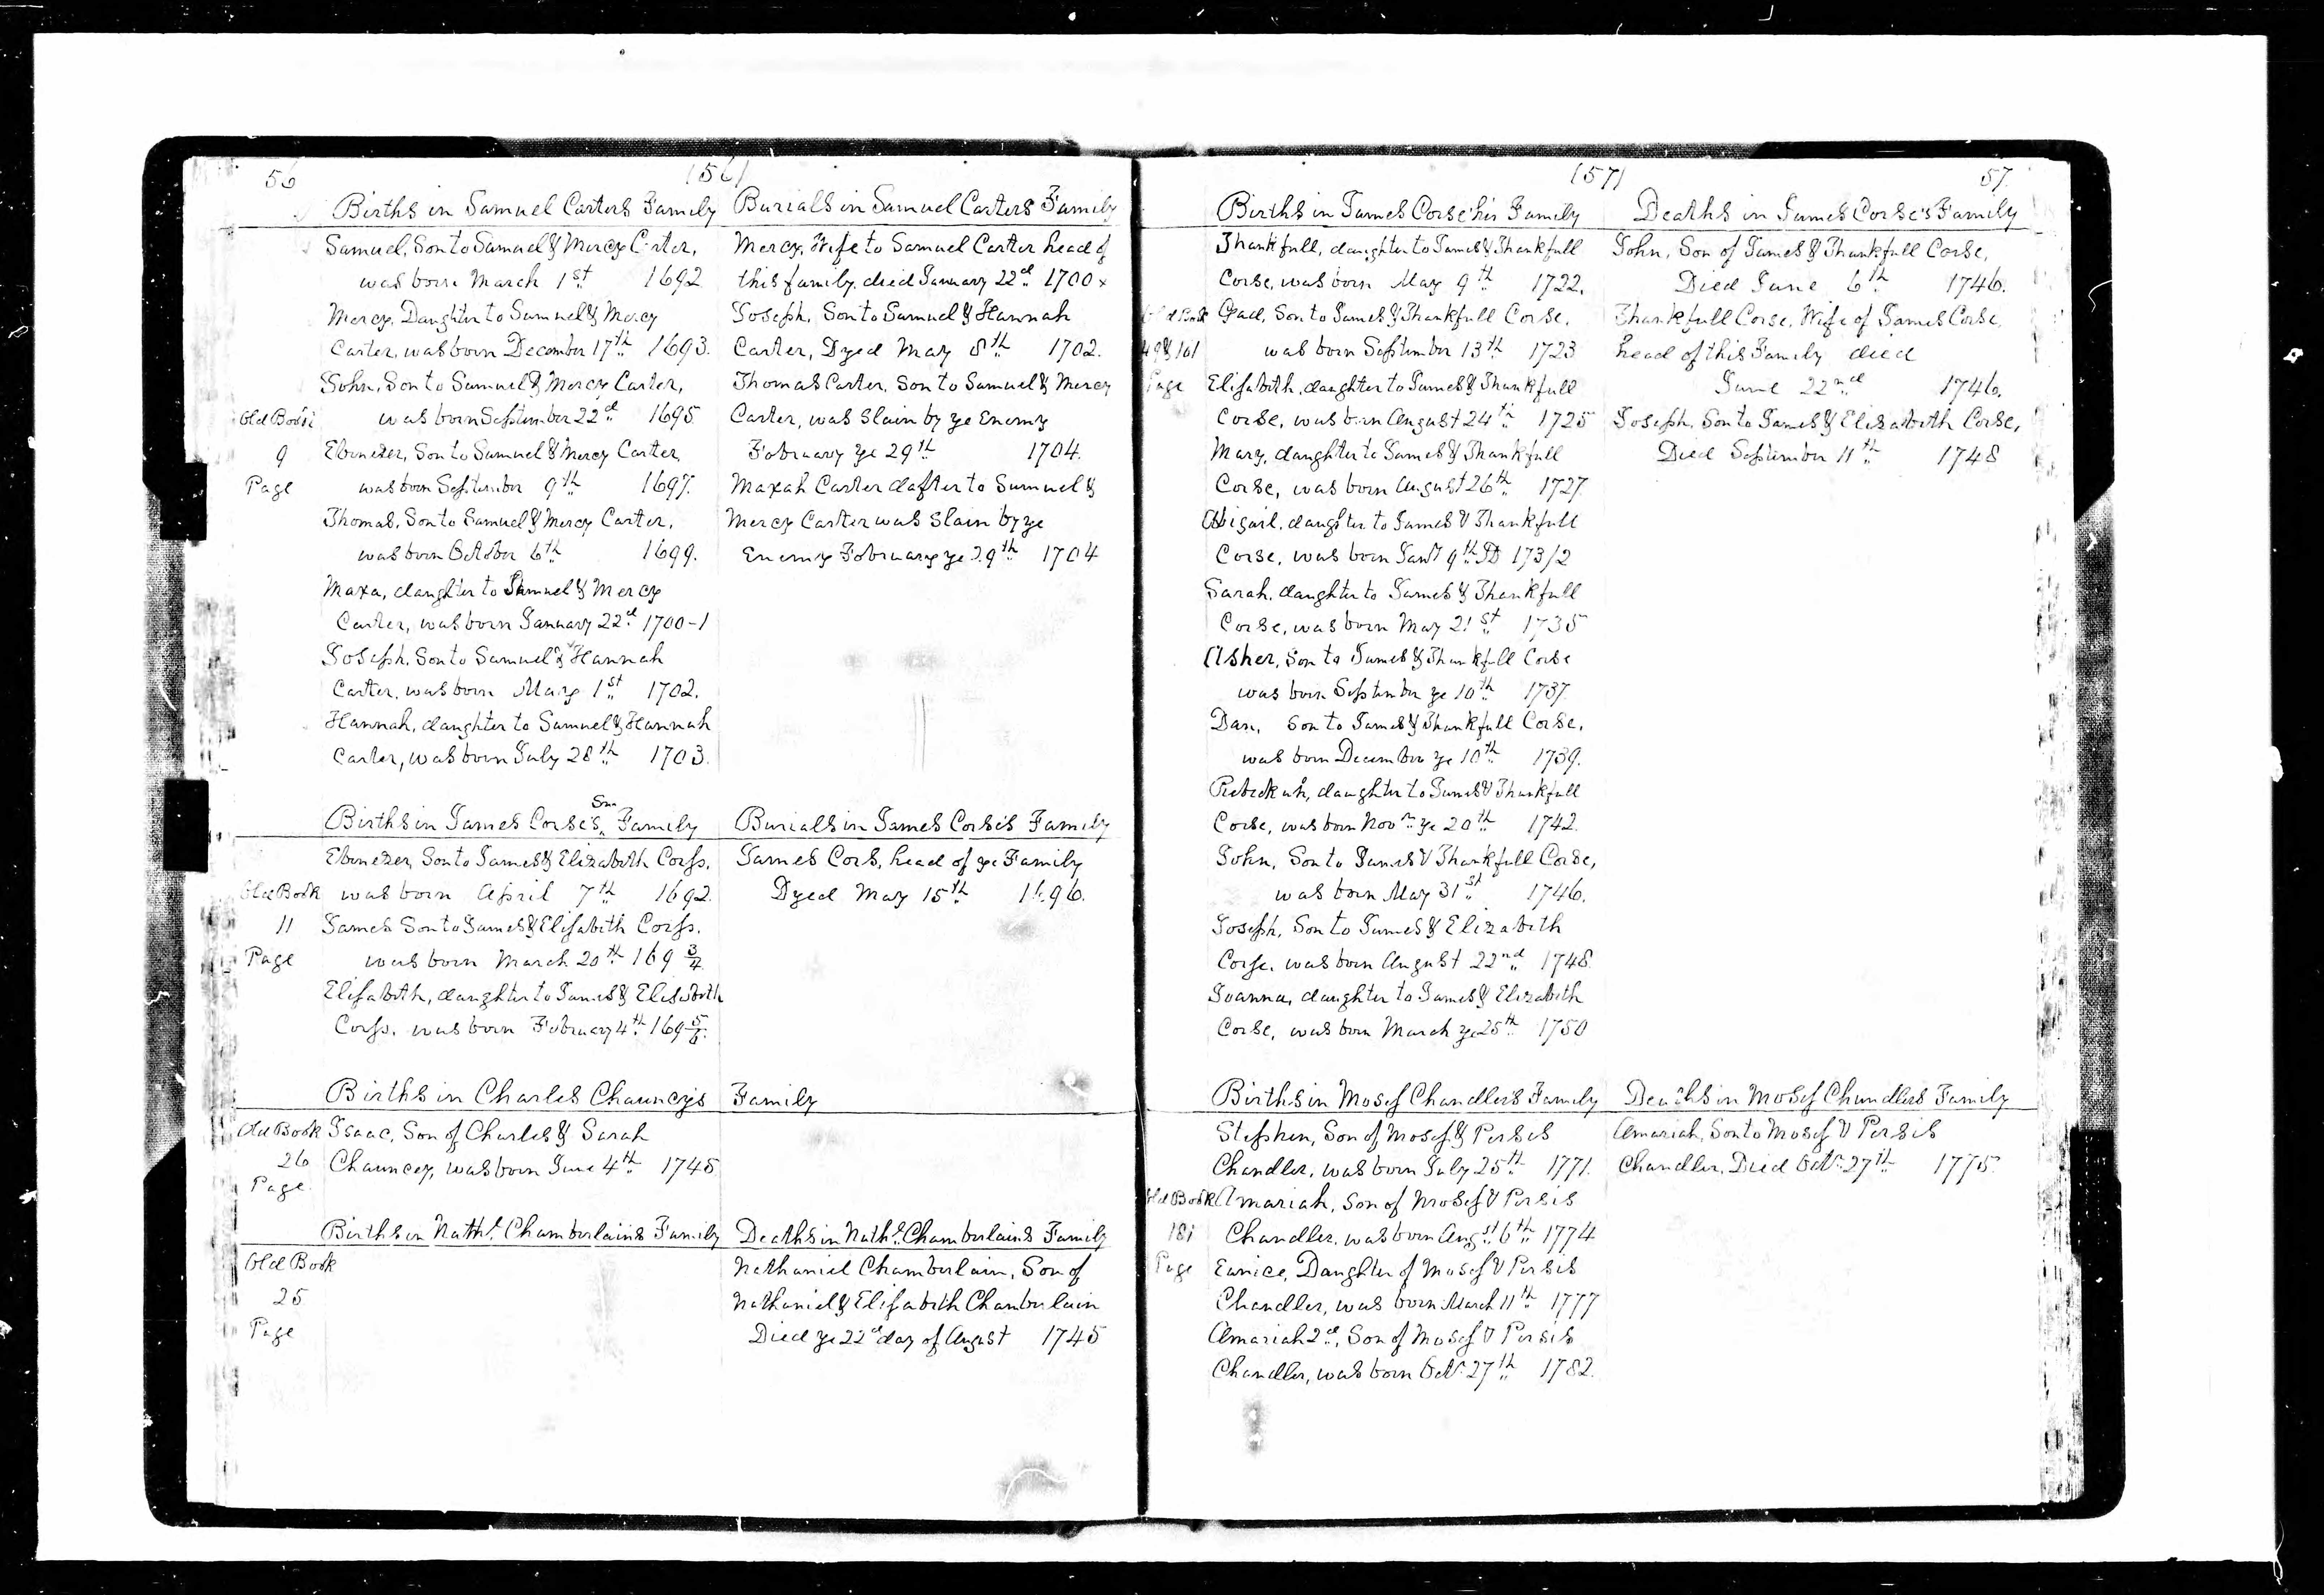 56
(56)
Births in Samuel Carters Family
Samuel, Son to Samuel & Mercy Carter,
was born March 1st 1692
Mercy, Daughter to Samuel & Mercy
Carter, was born December 17th 1693.
John, Son to Samuel & Mercy Carter,
Old Book was born September 22d 1695
9 Ebenezer, Son to Samuel & Mercy Carter,
Page was born September 9th 1697.
Thomas, Son to Samuel & Mercy Carter,
was born October 6th 1699.
Maxa, daughter to Samuel & Mercy
Carter, was born January 22d 1700-1
Joseph, Son to Samuel & Hannah
Carter, was born May 1st 1702.
Hannah, daughter to Samuel & Hannah
Carter, was born July 28th 1703.
Burials in Samuel Carters Family
Mercy, Wife to Samuel Carter head of
this family, died January 22d 1700 x
Joseph, Son to Samuel & Hannah
Carter, Dyed May 8th 1702.
Thomas Carter, Son to Samuel & Mercy
Carter, was Slain by ye Enemy
February ye 29th 1704.
Maxah Carter dafter to Samuel &
Mercy Carter was Slain by ye
Enemy February ye 29th 1704
Births in James Corse's Family
Ebenezer, Son to James & Elizabeth Corss,
Old Book was born April 7th 1692.
11 James Son to James & Elisabeth Corss,
Page was born March 20th 169 3/4
Elisabeth, daughter to James & Elisabeth
Corss, was born February 4th 169 5/6.
Burials in James Corse's Family
James Cors, head of ye Family
Dyed May 15th 1696.
Births in Charles Chauncys Family
Old Book Isaac, Son of Charles & Sarah
26 Chauncey, was born June 4th 1745
Page
Births in Nathl. Chamberlains Family
Old Book
25
Page
Deaths in Nathl. Chamberlains Family
Nathaniel Chamberlain, Son of
Nathaniel & Elisabeth Chamberlain
Died ye 22d day of August 1745
(57)
57
Births in James Corse his Family
Thankfull, daughter to James & Thankfull
Corse, was born May 9th 1722.
Old Book Gad, Son to James & Thankfull Corse,
49 & 161 was born September 13th 1723
Page Elisabeth, daughter to James & Thankfull
Corse, was born August 24th 1725
Mary, daughter to James & Thankfull
Corse, was born August 26th 1727.
Abigail, daughter to James & Thankfull
Corse, was born Jany 9th 173 1/2
Sarah, daughter to James & Thankfull
Corse, was born May 21st 1735
Asher, Son to James & Thankfull Corse
was born September ye 10th 1737.
Dan, Son to James & Thankfull Corse,
was born December ye 10th 1739.
Rebeckah, daughter to James & Thankfull
Corse, was born Novr ye 20th 1742.
John, Son to James & Thankfull Corse,
was born May 31st 1746.
Joseph, Son to James & Elizabeth
Corse, was born August 22nd 1748.
Joanna, daughter to James & Elizabeth
Corse, was born March ye 25th 1750
Deaths in James Corse's Family
John, Son of James & Thankfull Corse,
Died June 6th 1746.
Thankfull Corse, Wife of James Corse,
head of this Family died
June 22nd 1746.
Joseph, Son to James & Elizabeth Corse,
Died September 11th 1748
Births in Moses Chandlers Family
Stephen, Son of Moses & Persis
Chandler, was born July 25th 1771.
Old Book Amariah, Son of Moses & Persis
181 Chandler, was born Augst 6th 1774
Page Eunice, Daughter of Moses & Persis
Chandler, was born March 11th 1777
Amariah 2d, Son of Moses & Persis
Chandler, was born Octr. 27th 1782.
Deaths in Moses Chandlers Family
Amariah, Son to Moses & Persis
Chandler, Died Octr. 27th 1775.